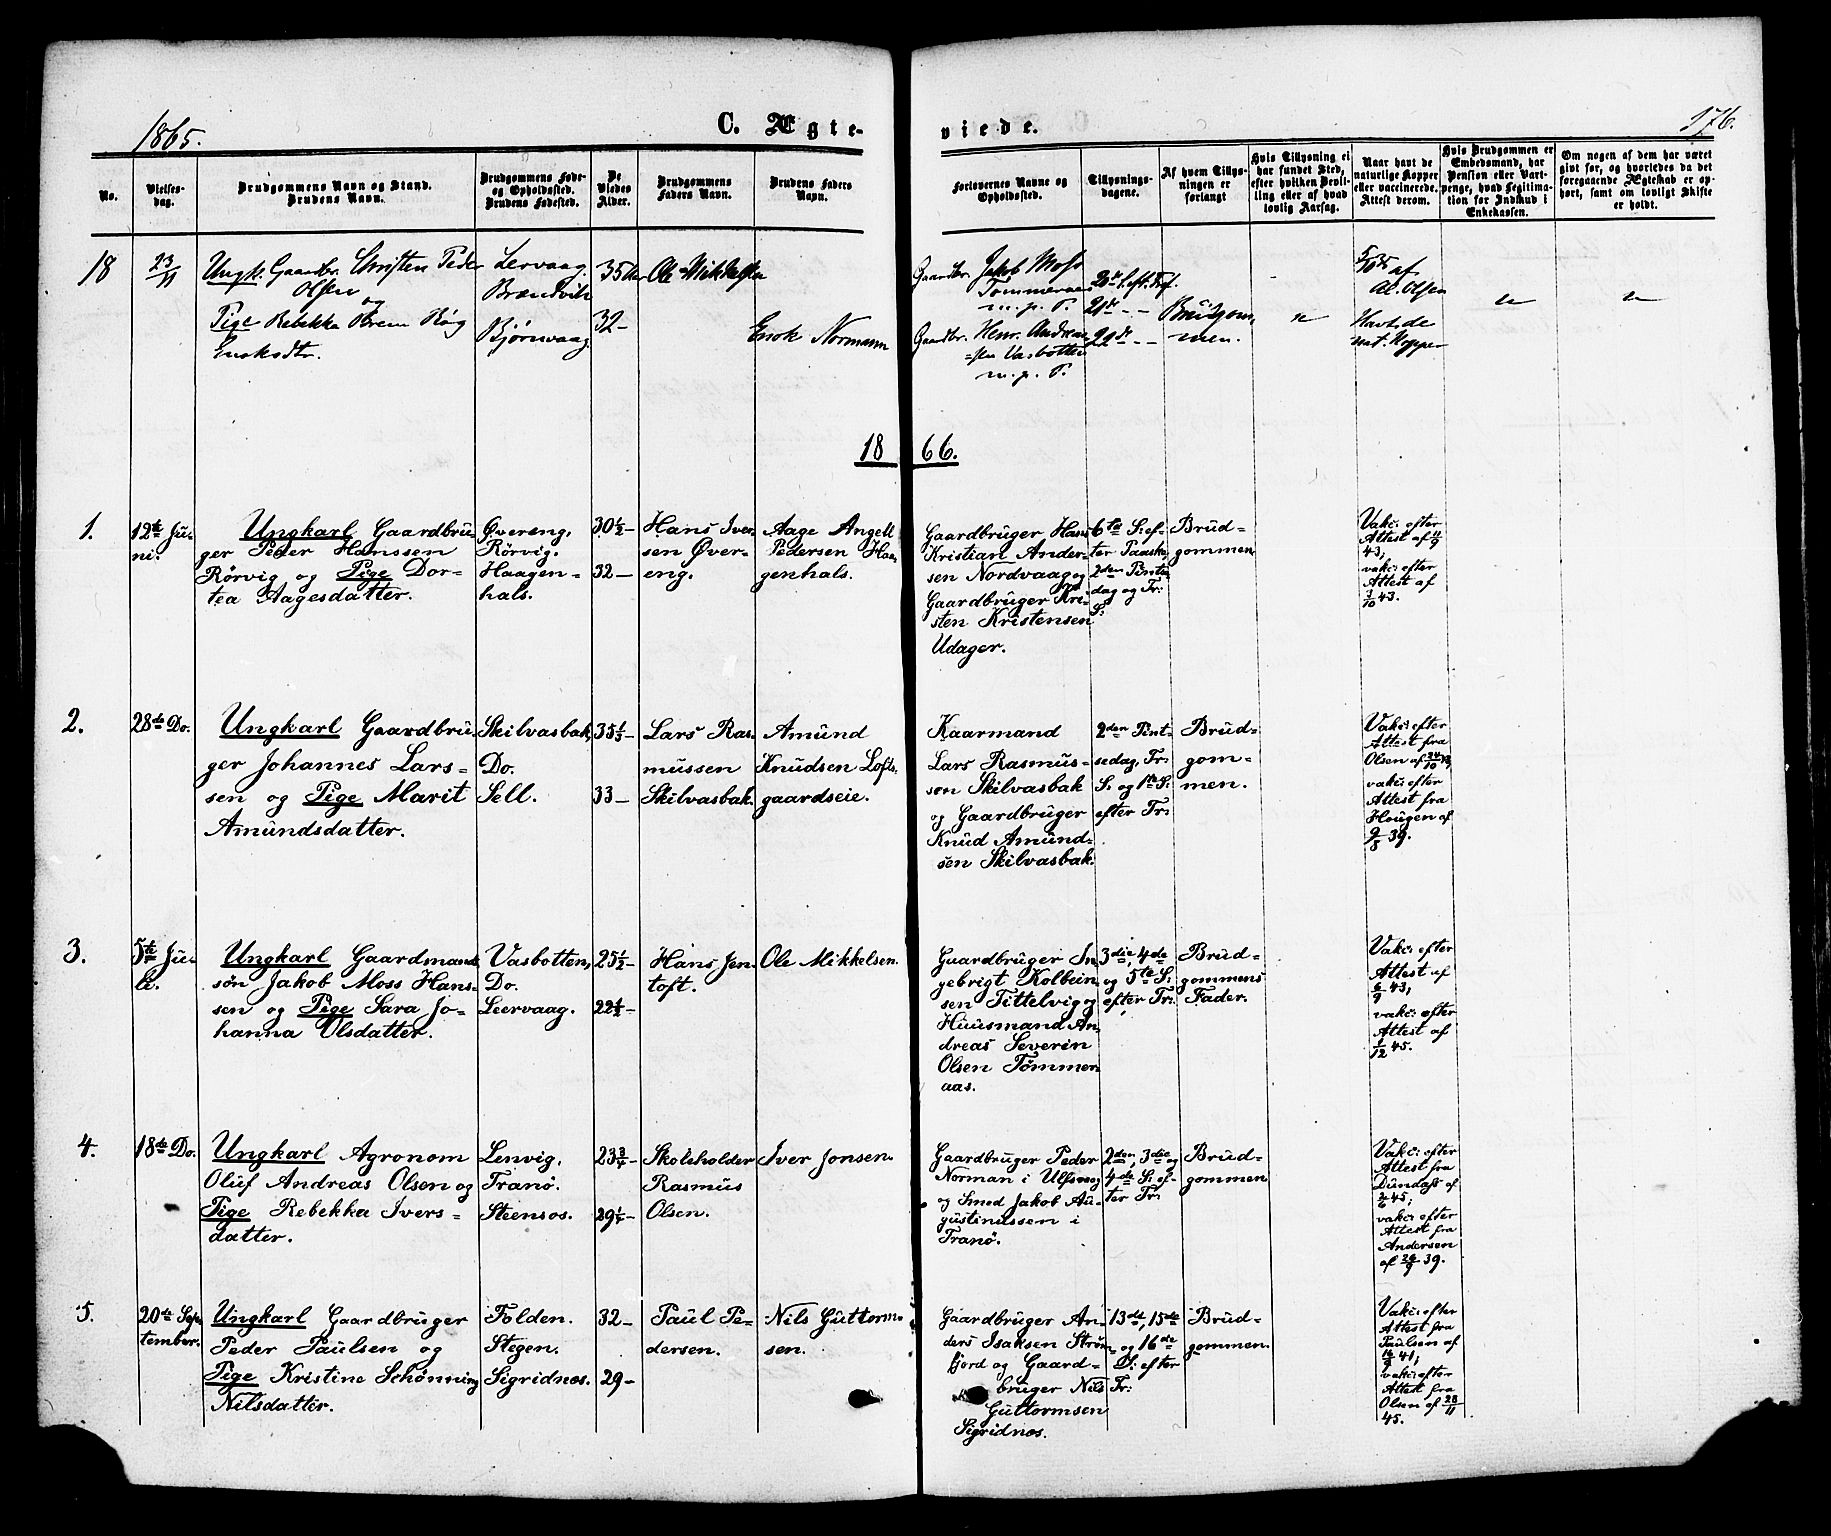 1865.
C. Ægte-
viede.
176.
No.
Vielses-
dag.
Brudgommens Navn og Stand.
Brudens Navn.
Brudgommens Føde-
og Opholdssted.
Brudens Fødested.
De
Viedes
Alder.
Brudgommens
Faders Navn.
Brudens Faders
Navn.
Forlovernes Navne og
Opholdssted.
Tillysnings-
dagene.
Af hvem Tillys-
ningen er
forlangt
Hvis Tillysning ei
har fundet Sted,
efter hvilken Bevil-
ling eller af hvad
lovlig Aarsag.
Naar havt de
naturlige Kopper
eller vaccinerede.
Attest derom.
Hvis Brudgommen er
Embedsmand, har
Pension eller Vart-
penge, hvad Legitima-
tion for Indskud i
Enkekassen.
Om nogen af dem har været
givt før, og hvorledes da det
foregaaende Ægteskab er op-
hørt, samt om lovligt Skifte
er holdt.
18
23/11
Ungk. Gaardbr. Christen Peder
Olsen
og
Pige Rebekka
Enoksdtr.
Lervaag
Brændvik
Bjørnvaag
35
32-
Ole Mikkelsen
Enok Normann
Gaardbr. Jakob Moss
Tømmeraas
m. p. P.
Gaardbr. Henr. Andrea-
sen Vasbotten
m. p. P.
20de S. eft. Tref.
21de - -
22de - -
Brudgom-
men.
af
Ol. Olsen
Havt de
nat. Kopper
18 66.
1.
12te Ju-
ni.
Ungkarl Gaardbru-
ger Peder Hanssen
Rörvig og Pige Dor-
tea Aagesdatter.
Øvereng,
Rörvig.
Haagen-
hals.
30½-
32-
Hans Iver-
sen Øver-
eng.
Aage Angell
Pedersen Haa-
genhals.
Gaardbruger Hans
Kristian Ander-
sen Nordvaag og
Gaardbruger Kri-
sten Kristensen
Udager.
6te S. ef-
ter Paaske,
2den Pintse-
dag og Tr:
S:
Brud-
gommen
Vakc: efter
Attest af 11/9
43,
vakc: efter
Attest af
3/10 43.
2.
28de Do.
Ungkarl Gaardbru-
ger Johannes Lars-
sen og Pige Marit
Amundsdatter.
Skilvasbak,
Do.
Sell.
35⅓-
33-
Lars Ras-
mussen
Skilvasbak.
Amund
Knudsen Lofts-
gaardseie.
Kaarmand
Lars Rasmus-
sen Skilvasbak
og Gaardbruger
Knud Amund-
sen Skilvasbak.
2den Pint-
sedag, Tr:
S: og 1ste S:
efter Tr:
Brud-
gom-
men.
Vakc: efter
Attest fra
Olsen af
vakc: efter
Attest fra
Hougen af
9/8 39.
3.
5te Ju-
li.
Ungkarl Gaardmands-
søn Jakob Moss Hans-
sen og Pige Sara Jo-
hanna Olsdatter.
Vasbotten,
Do.
Leervaag.
25½-
22½-
Hans Jen-
toft.
Ole Mikkelsen.
Gaardbruger In-
gebrigt Kolbein-
sen Tittelvig og
Huusmand An-
dreas Severin
Olsen Tømmer-
aas.
3die, 4de
og 5te S:
efter Tr:
Brud-
gommens
Fader.
Vakc: efter
Attest af
6/9 43,
vakc: efter
Attest af
/12 45.
4.
18de Do.
Ungkarl Agronom
Oluf Andreas Olsen og
Pige Rebekka Ivers-
datter.
Lenvig,
Tranö.
Steensøs.
23¾-
29¼-
Skoleholder
Rasmus
Olsen.
Iver Jonsen.
Gaardbruger Peder
Norman i Ulfsvog
og Smed Jakob Au-
gustinussen i
Tranö.
2den, 3die og
4de S: ef-
ter Tr:
Brud-
gommen
Vakc: efter
Attest fra
Dundast af
2/6 45,
vakc: efter
Attest fra
Andersen
af 29/9 39.
5.
20de Sep-
tember.
Ungkarl Gaardbruger
Peder Paulsen og
Pige Kristine Schönning
Nilsdatter.
Folden.
Stegen.
Sigridnæs.
32-
29-
Paul Pe-
dersen.
Nils Guttorm-
sen.
Gaardbruger An-
ders Isaksen Strøm-
fjord og Gaard-
bruger Nils
Guttormsen
Sigridnæs.
13de, 15de
og 16de
S: efter
Tr:
Brud-
gommen.
Vakc: efter
Attest fra
Paulsen af
16/9 41,
vakc: efter
Attest fra
Olsen af 28/11
45.